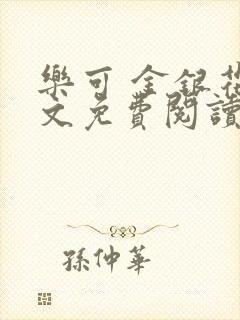 樂可 金銀花
文免費閱讀
孫仲華